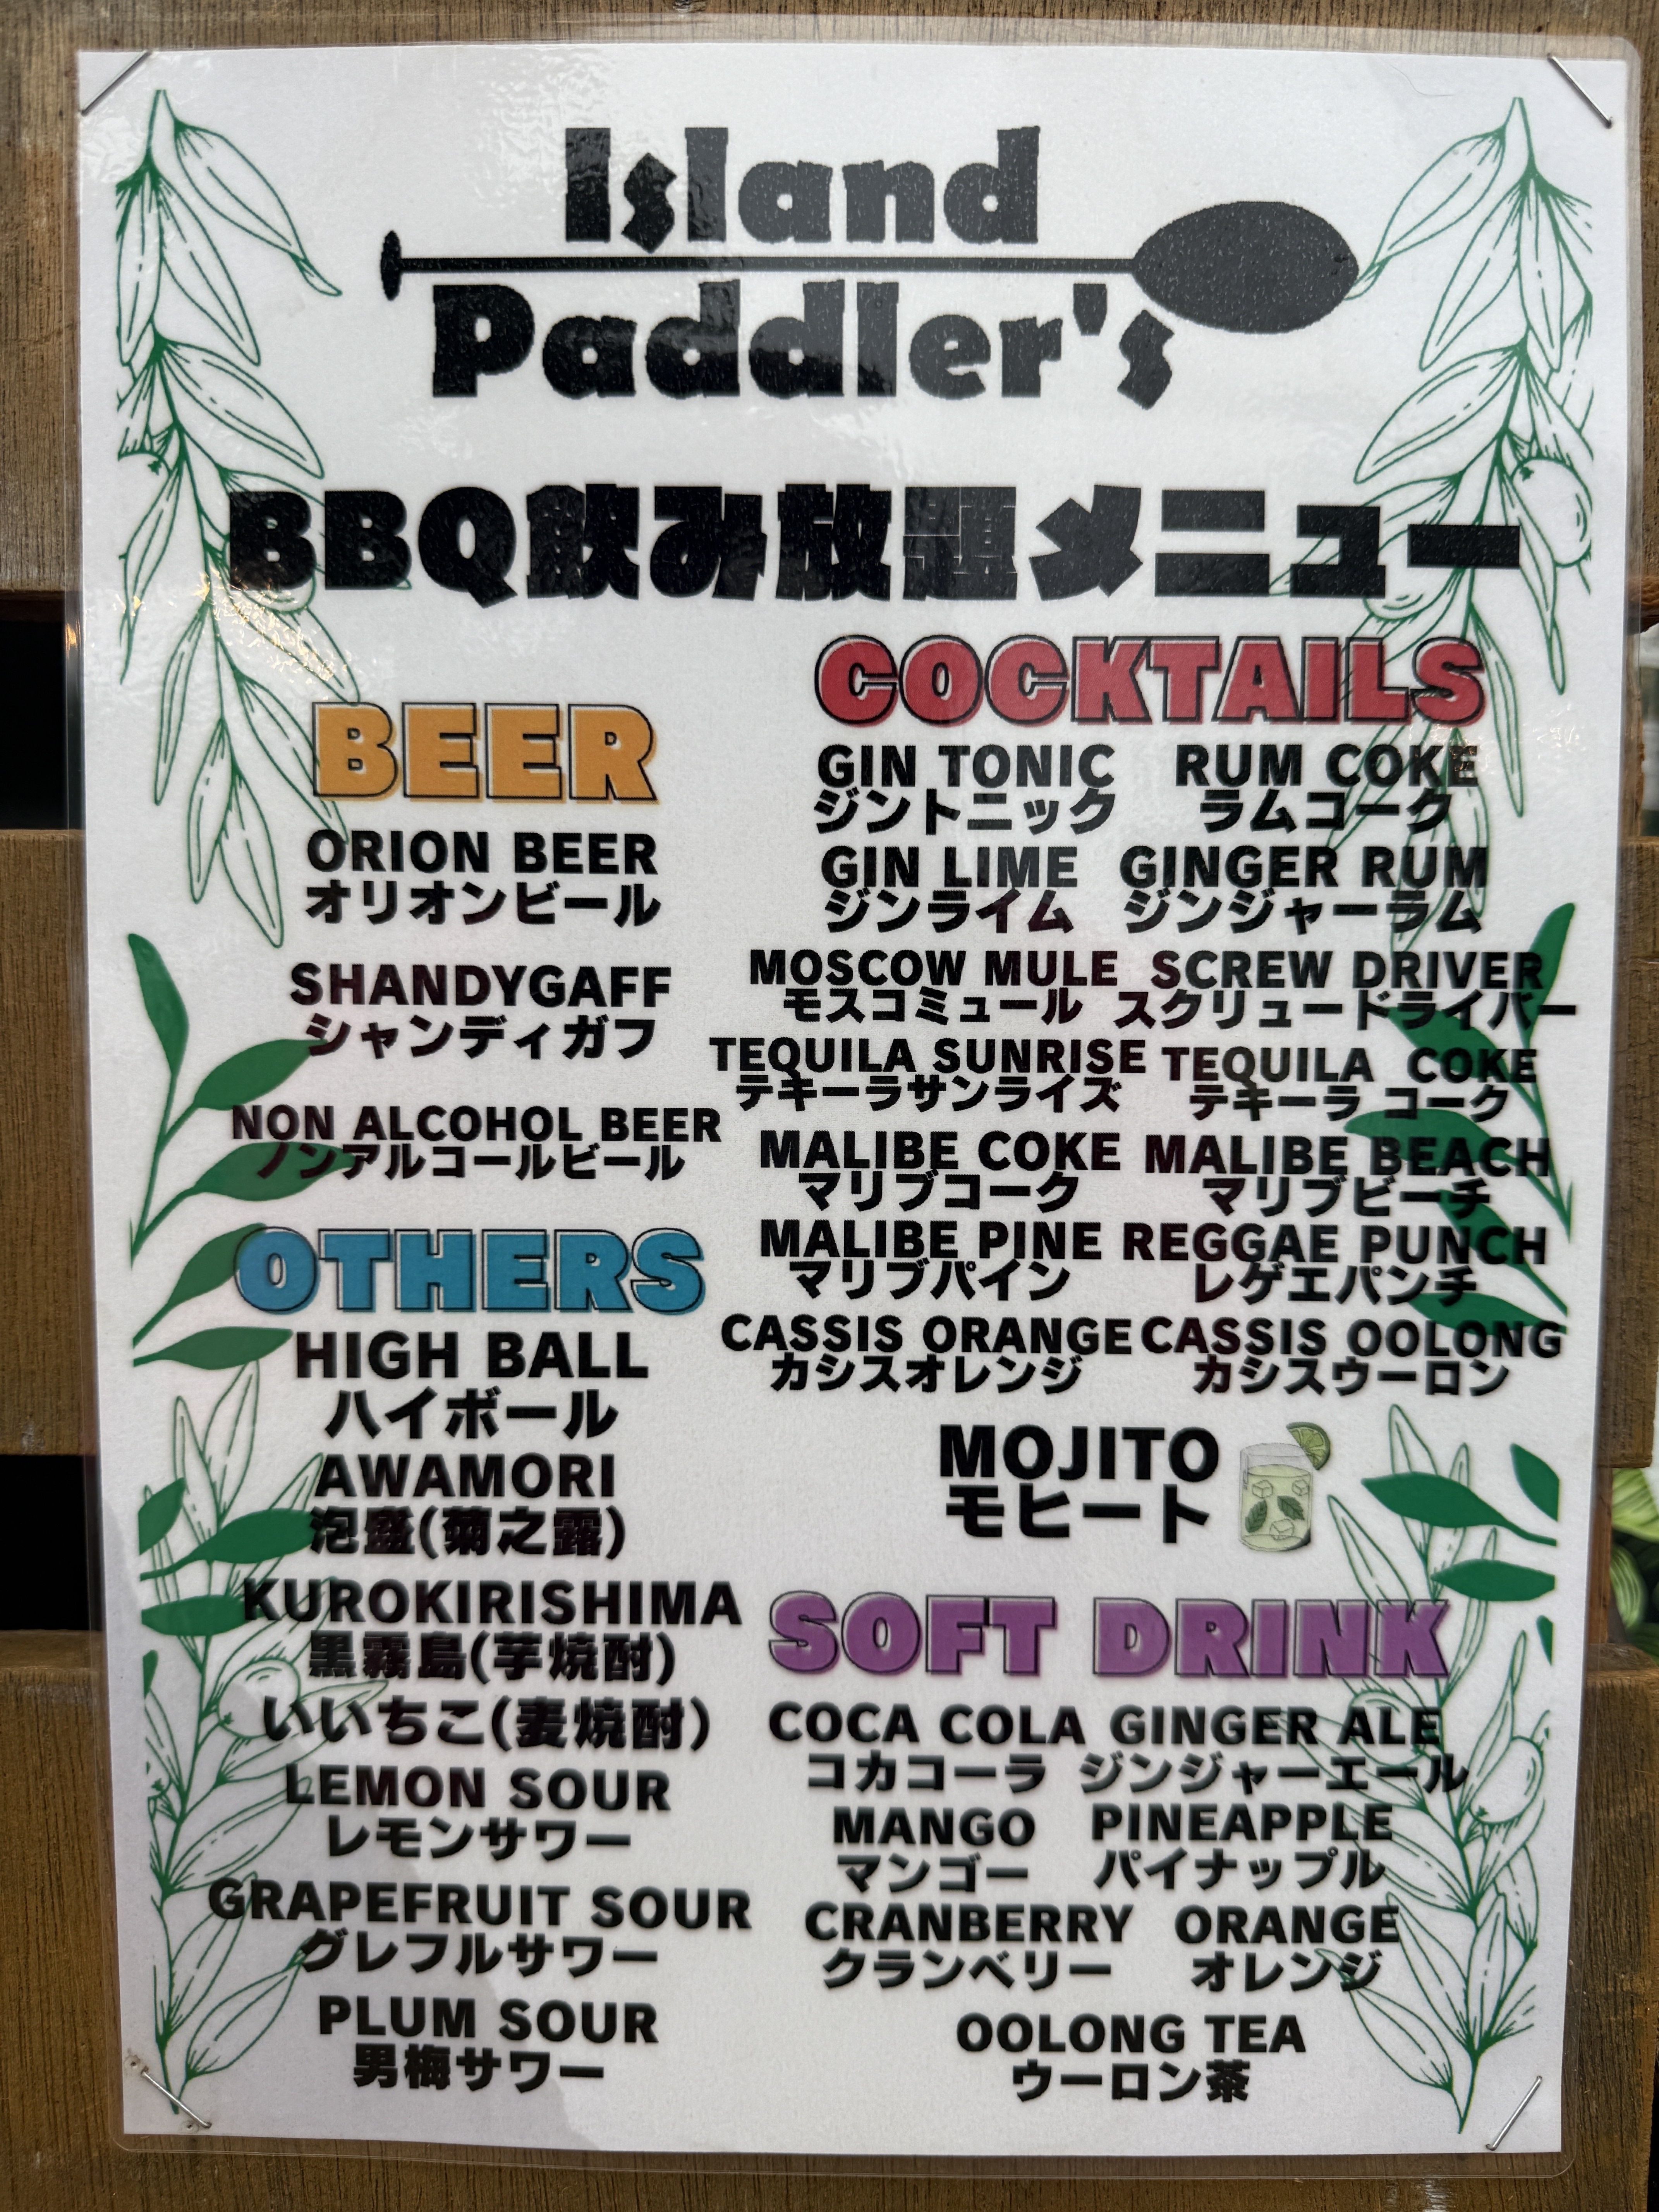 Island
Paddler's
BBQ飲み放題メニュー
BEER
ORION BEER
オリオンビール
SHANDYGAFF
シャンディガフ
NON ALCOHOL BEER
ノンアルコールビール
OTHERS
HIGH BALL
ハイボール
AWAMORI
泡盛(菊之露)
KUROKIRISHIMA
黒霧島(芋焼酎)
いいちこ(麦焼酎)
LEMON SOUR
レモンサワー
GRAPEFRUIT SOUR
グレフルサワー
PLUM SOUR
男梅サワー
COCKTAILS
GIN TONIC RUM COKE
ジントニック ラムコーク
GIN LIME GINGER RUM
ジンライム ジンジャーラム
MOSCOW MULE SCREW DRIVER
モスコミュール スクリュードライバー
TEQUILA SUNRISE TEQUILA COKE
テキーラサンライズ テキーラ コーク
MALIBE COKE MALIBE BEACH
マリブコーク マリブビーチ
MALIBE PINE REGGAE PUNCH
マリブパイン レゲエパンチ
CASSIS ORANGE CASSIS OOLONG
カシスオレンジ カシスウーロン
MOJITO
モヒート
SOFT DRINK
COCA COLA GINGER ALE
コカコーラ ジンジャーエール
MANGO PINEAPPLE
マンゴー パイナップル
CRANBERRY ORANGE
クランベリー オレンジ
OOLONG TEA
ウーロン茶